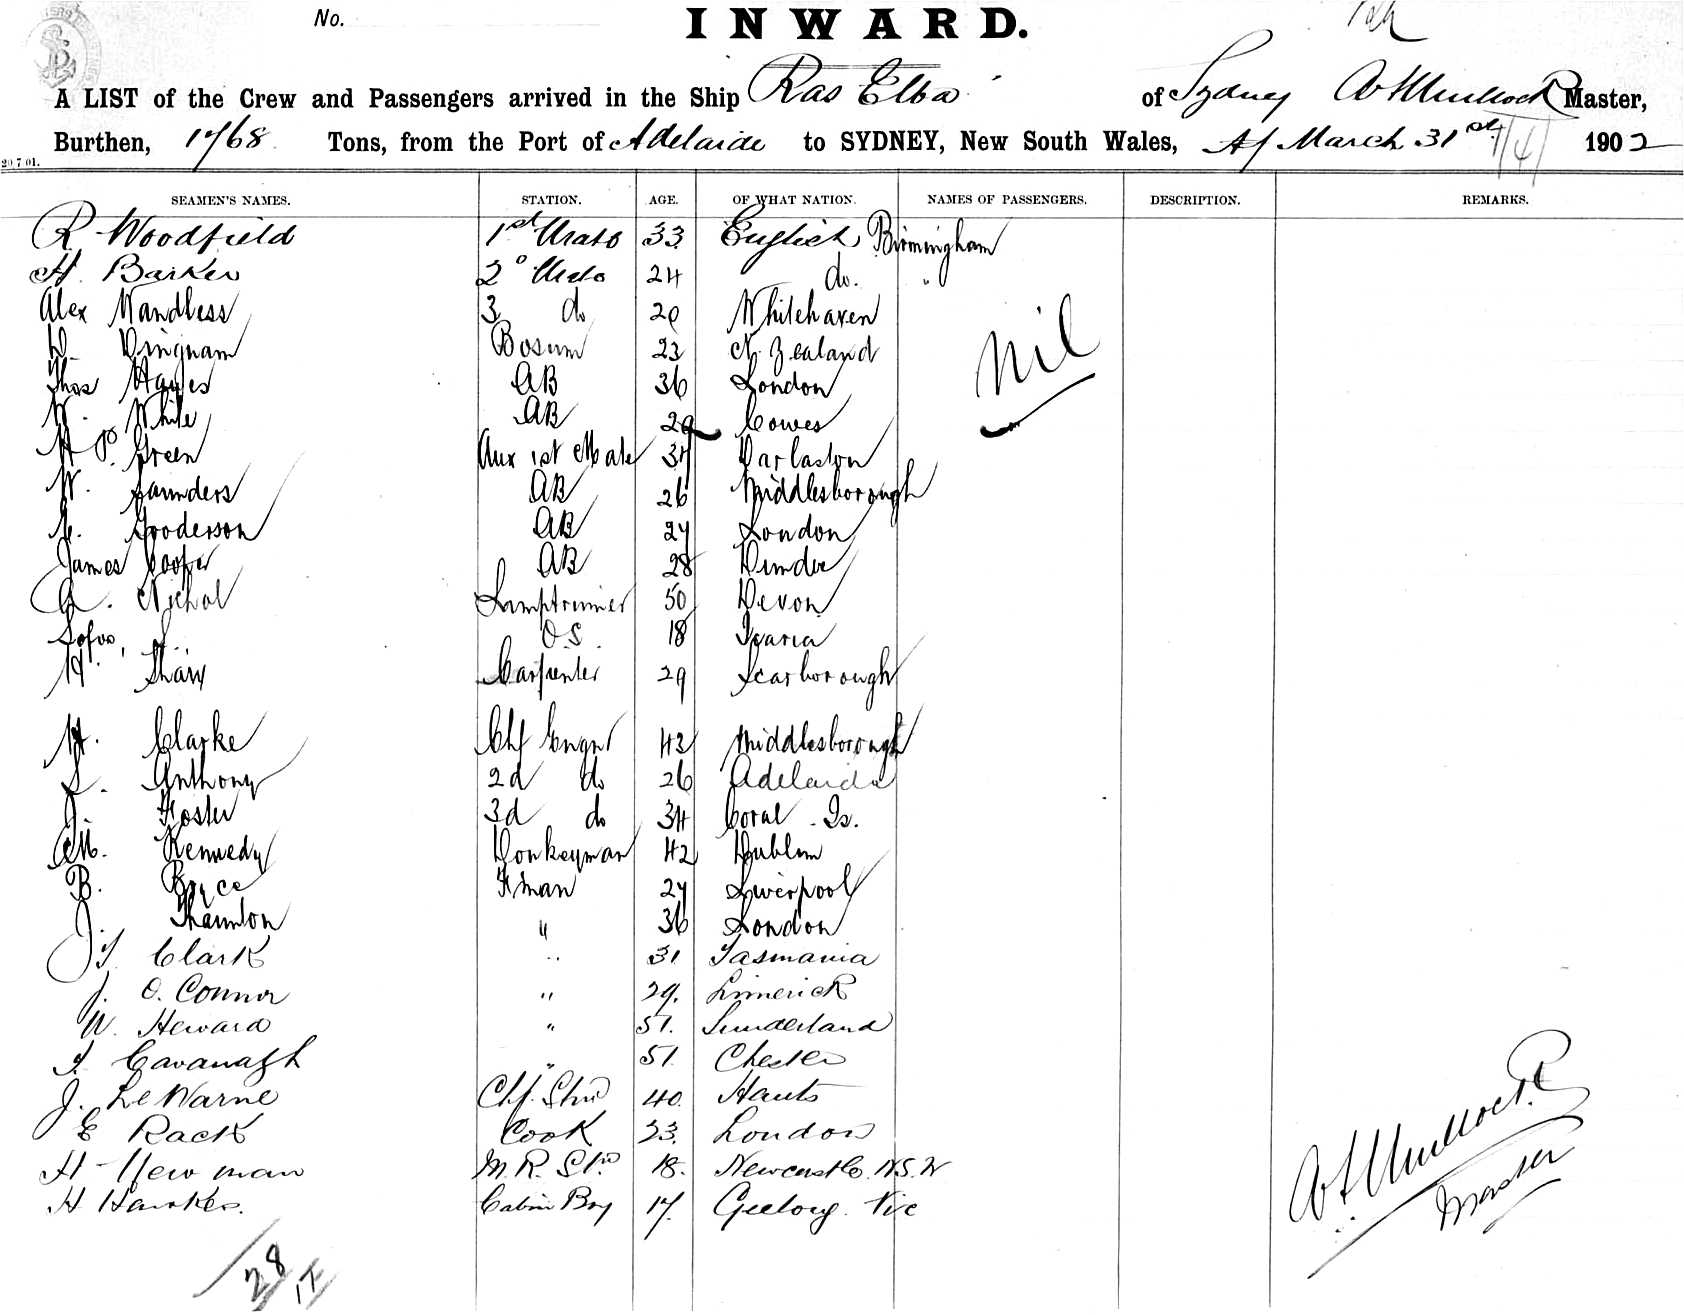 No.
INWARD.
A LIST of the Crew and Passengers arrived in the Ship Ras Elba of Sydney Master,
Burthen, 1768 Tons, from the Port of Adelaide to SYDNEY, New South Wales, March 31st 1902
20 7 01.
SEAMEN'S NAMES. STATION. AGE. OF WHAT NATION. NAMES OF PASSENGERS. DESCRIPTION. REMARKS.
R Woodfield 1st Mate 33 English Birmingham
H. Barker 2° Mate 24 do. "
Alex Wandless 3 do 20 Whitehaven
D. Dingnam Bosum 23 N. Zealand
Thos Hayes AB 36 London
W. White AB 29 Cowes
H P. Green Aux 1st Mate 37 Darlaston
W. Saunders AB 26 Middlesborough
Gooderson AB 27 London
James Cooper AB 28 Dundee
A. Nichol Lamptrimer 50 Devon
O.S. 18
H. Carpenter 29 Scarborough
H. Clarke Chf Engnr 43 Middlesborough
S. Anthony 2d do 26 Adelaide
J. Foster 3d do 34 Coral Is.
M. Kennedy Donkeyman 42 Dublin
B. Bryce Fman 27 Liverpool
J. " 36 London
Clark " 31 Tasmania
J. O. Connor " 29. Limerick
W. Heward " 51. Sunderland
T. Cavanagh " 51. Chester
J. Le Warne Chf. Stwd 40. Hants
E Rack Cook 23. London
H Newman M. R. Stwd 18. Newcastle. N.S.W
H Hawkes. Cabin Boy 17. Geelong. Vic
Nil
Master
28